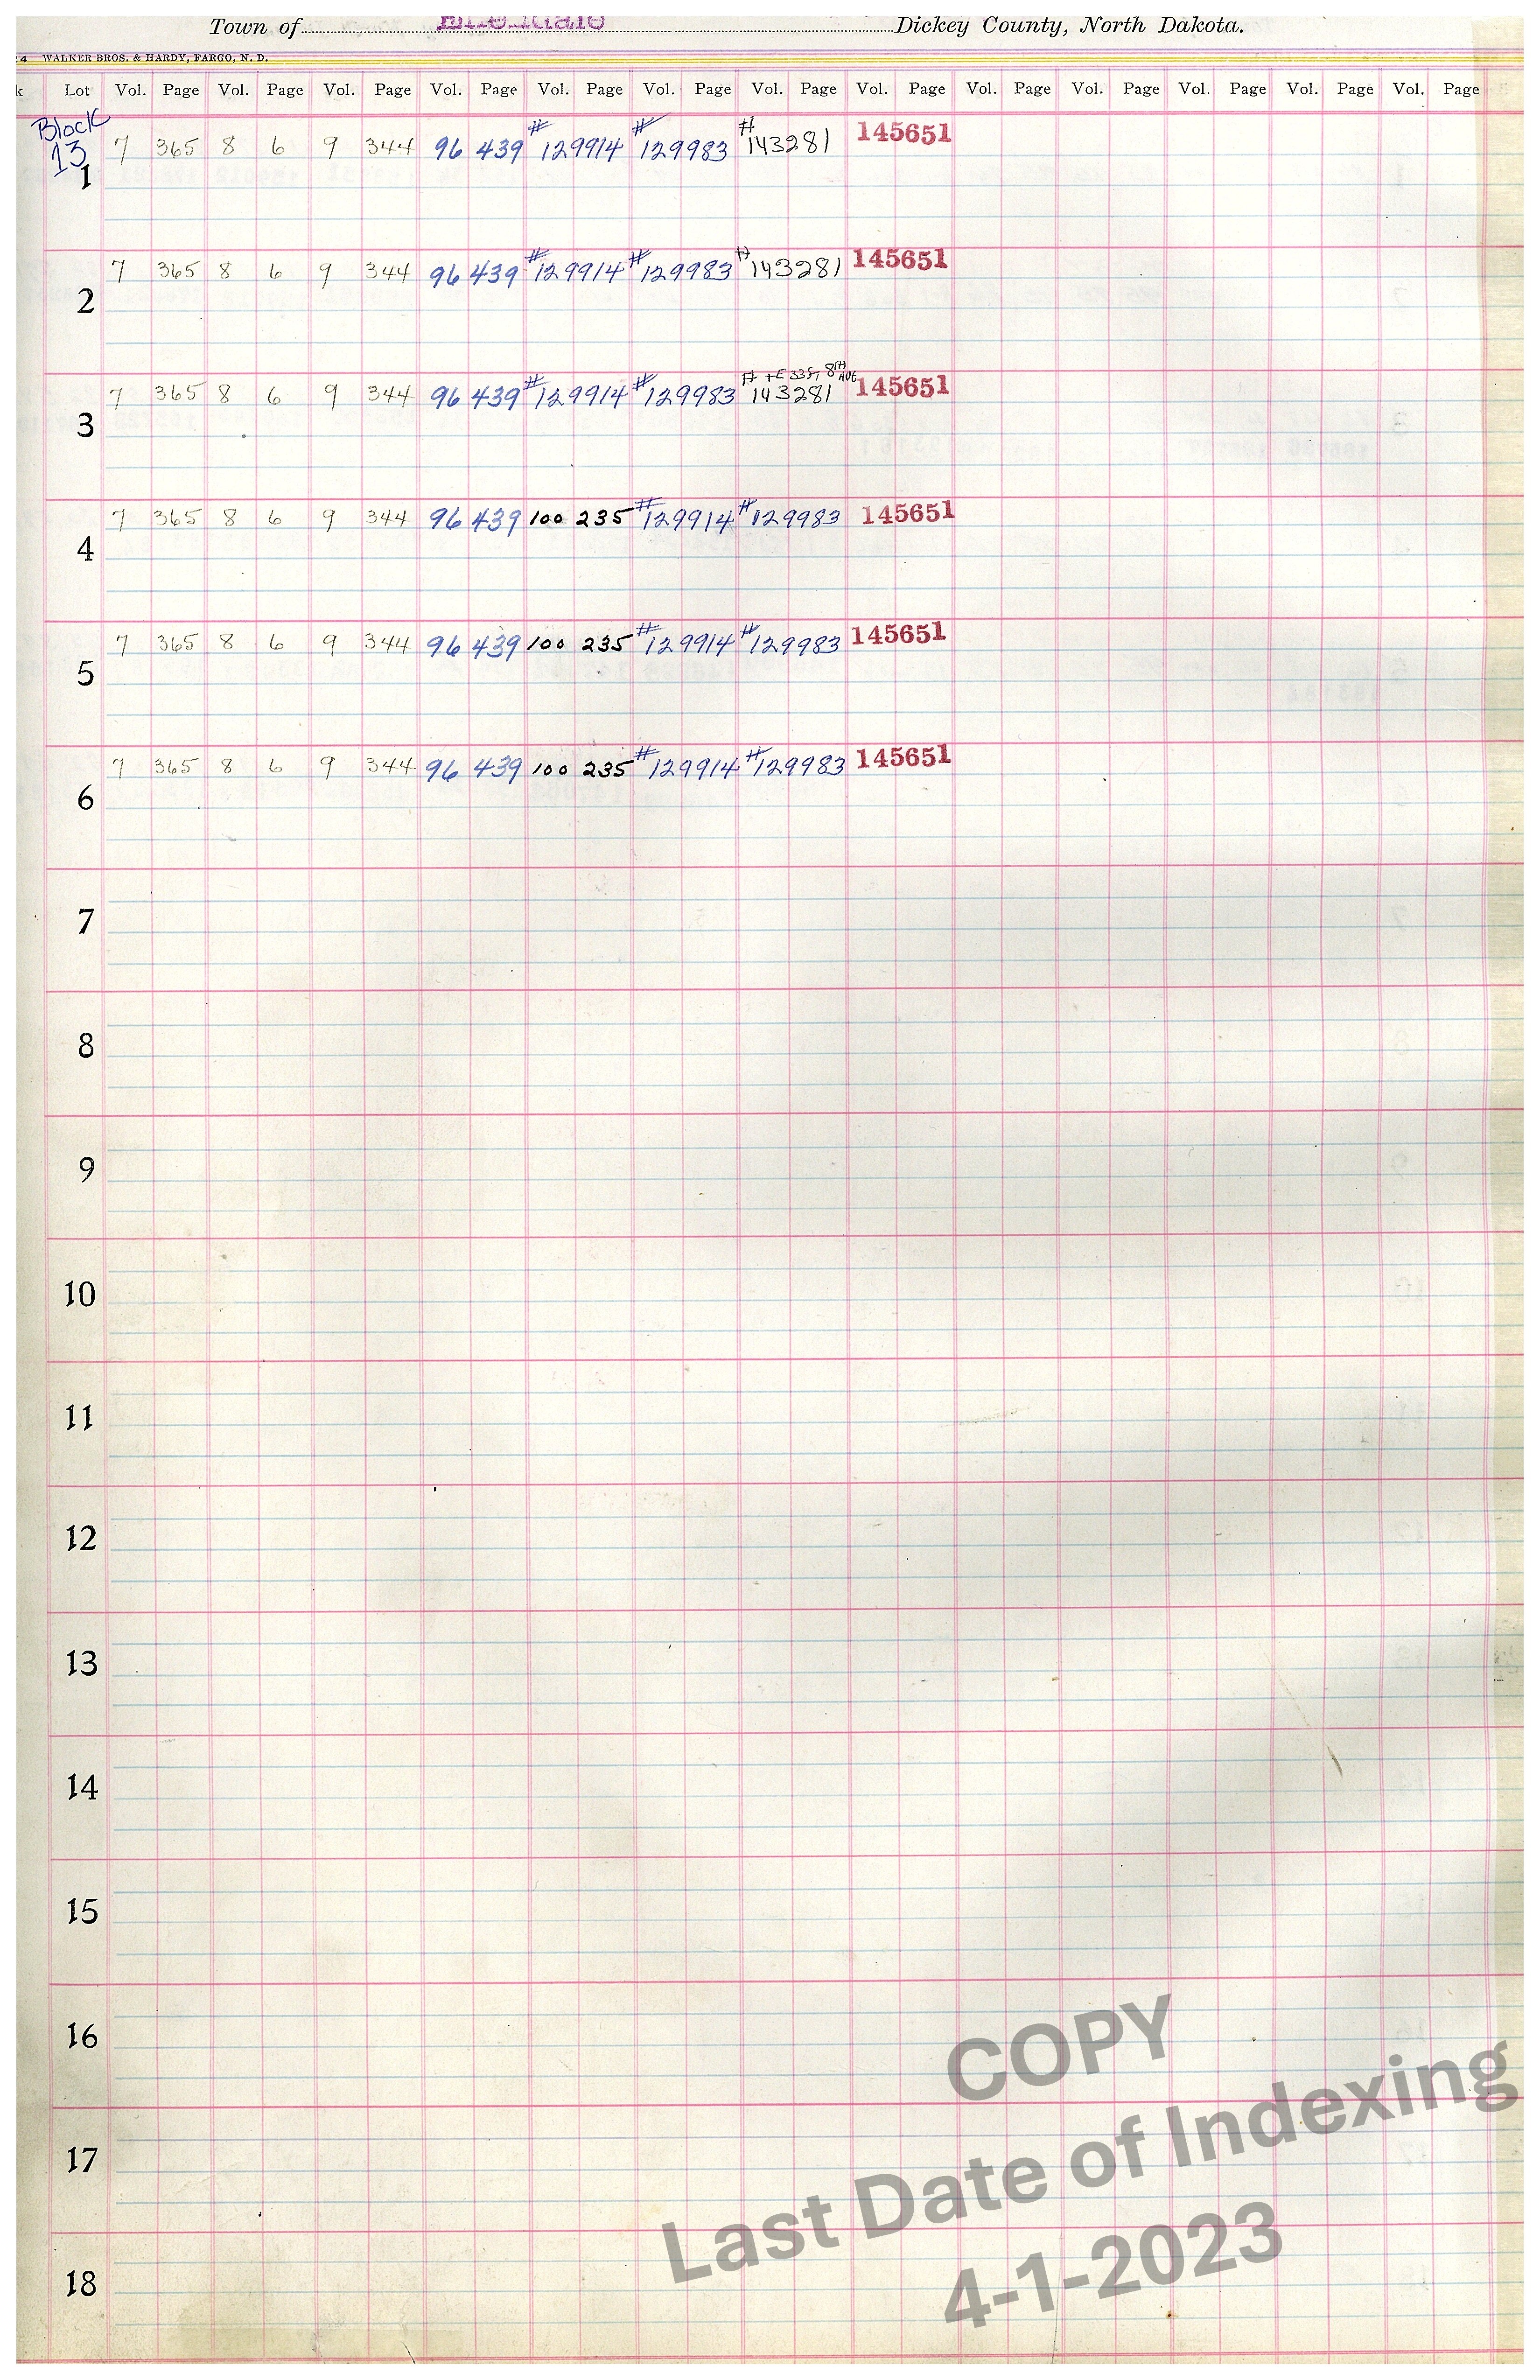 Town of Ellendale Dickey County, North Dakota.
4 WALKER BROS. & HARDY, FARGO, N. D.
k Lot Vol. Page Vol. Page Vol. Page Vol. Page Vol. Page Vol. Page Vol. Page Vol. Page Vol. Page Vol. Page Vol. Page Vol. Page Vol. Page
Block
13
1 7 365 8 6 9 344 96 439 #129914 #129983 #143281 145651
2 7 365 8 6 9 344 96 439 #129914 #129983 #143281 145651
# +E 33ft 8th Ave
3 7 365 8 6 9 344 96 439 #129914 #129983 143281 145651
4 7 365 8 6 9 344 96 439 100 235 #129914 #129983 145651
5 7 365 8 6 9 344 96 439 100 235 #129914 #129983 145651
6 7 365 8 6 9 344 96 439 100 235 #129914 #129983 145651
7
8
9
10
11
12
13
14
15
16
17
18
COPY
Last Date of Indexing
4-1-2023